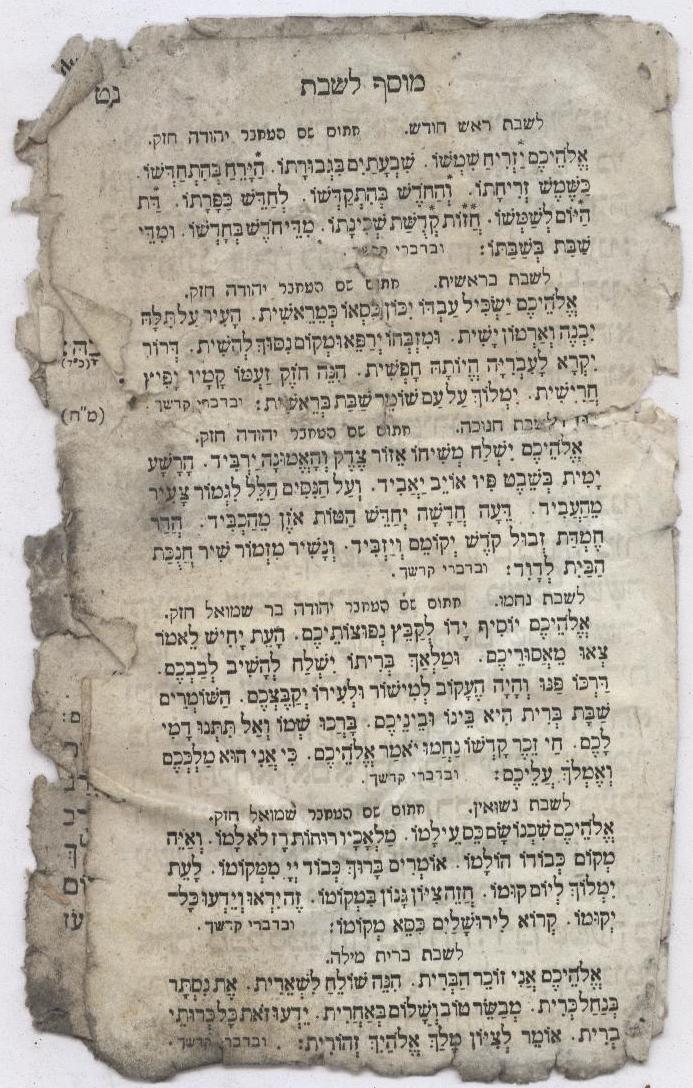 מוסף לשבת
נט
לשבת ראש חודש. חתום שם המחבר יהודה חזק.
אֱלֹהֵיכֶם יַזְרִיחַ שִׁמְשׁוֹ. שִׁבְעָתַיִם בִּגְבוּרָתוֹ. הַיָּרֵחַ בְּהִתְחַדְּשׁוֹ.
כַּשֶּׁמֶשׁ זְרִיחָתוֹ. וְהַחֹדֶשׁ בְּהִתְקַדְּשׁוֹ. לְחַדֵּשׁ כַּפָּרָתוֹ. דָּת
הַיּוֹם לְשַׁמְּשׁוֹ. חֲזוֹת קְדֻשַּׁת שְׁכִינָתוֹ. מִדֵּי חֹדֶשׁ בְּחָדְשׁוֹ. וּמִדֵּי
שַׁבָּת בְּשַׁבַּתּוֹ: ובדברי קדשך.
לשבת בראשית. חתום שם המחבר יהודה חזק.
אֱלֹהֵיכֶם יַשְׂכִּיל עַבְדּוֹ יִכּוֹן כִּסְאוֹ כְּמֵרֵאשִׁית. הָעִיר עַל תִּלָּהּ
יִבָּנֶה וְאַרְמוֹן יָשִׁית. וּמִזְבְּחוֹ יְרַפֵּא וּמְקוֹם נִסּוּךְ לְהָשִׁית. דְּרוֹר
יִקְרָא לָעִבְרִיָּה הֱיוֹתָהּ חָפְשִׁית. הִנֵּה חֹזֶק זַעְמוֹ קָמָיו יָפִיץ
חֲרִישִׁית. יִמְלוֹךְ עַל עַם שׁוֹמֵר שַׁבַּת בְּרֵאשִׁית: ובדברי קדשך.
לשבת חנוכה. חתום שם המחבר יהודה חזק.
אֱלֹהֵיכֶם יִשְׁלַח מְשִׁיחוֹ אֵזוֹר צֶדֶק וְהָאֱמוּנָה יַרְבִּיד. הָרָשָׁע
יָמִית בְּשֵׁבֶט פִּיו אוֹיֵב יַאֲבִיד. וְעַל הַנִּסִּים הַלֵּל לִגְמוֹר צָעִיר
מֵהַעֲבִיד. דֵּעָה חֲדָשָׁה יְחַדֵּשׁ הַטּוֹת אֹזֶן מֵהַכְבִּיד. הֲדַר
חֶמְדַּת זְבוּל קֹדֶשׁ יְקוֹמֵם וְיַזְבִּיד. וְנָשִׁיר מִזְמוֹר שִׁיר חֲנֻכַּת
הַבַּיִת לְדָוִד: ובדברי קדשך.
לשבת נחמו. חתום שם המחבר יהודה בר שמואל חזק.
אֱלֹהֵיכֶם יוֹסִיף יָדוֹ לְקַבֵּץ נְפוּצוֹתֵיכֶם. הָעֵת יָחִישׁ לֵאמֹר
צְאוּ מֵאֲסוּרֵיכֶם. וּמַלְאַךְ בְּרִיתוֹ יִשְׁלַח לְהָשִׁיב לְבַבְכֶם.
דַּרְכּוֹ פַּנּוּ וְהָיָה הֶעָקוֹב לְמִישׁוֹר וּלְעִירוֹ יְקַבֶּצְכֶם. הַשּׁוֹמְרִים
שַׁבָּת בְּרִית הִיא בֵּינוֹ וּבֵינֵיכֶם. בָּרְכוּ שְׁמוֹ וְאַל תִּתְּנוּ דֳמִי
לָכֶם. חַי זֵכֶר קָדְשׁוֹ נַחֲמוּ יֹאמַר אֱלֹהֵיכֶם. כִּי אֲנִי הוּא מַלְכְּכֶם
וְאֶמְלֹךְ עֲלֵיכֶם: ובדברי קדשך.
לשבת נשואין. חתום שם המחבר שמואל חזק.
אֱלֹהֵיכֶם שָׁכְנוֹ שָׂם כֵּס עֵילָמוֹ. מַלְאָכָיו רוּחוֹת רָז לֹא לָמוֹ. וְאַיֵּה
מְקוֹם כְּבוֹדוֹ הוֹלָמוֹ. אוֹמְרִים בָּרוּךְ כְּבוֹד יְיָ מִמְּקוֹמוֹ. לָעֵת
יִמְלוֹךְ לְיוֹם קוּמוֹ. חֲזֵה צִיּוֹן גָּנוֹן בִּמְקוֹמוֹ. זֶה יִרְאוּ וְיֵדְעוּ כָּל־
יְקוּמוֹ. קְרוֹא לִירוּשָׁלַיִם כִּסֵּא מְקוֹמוֹ: ובדברי קדשך.
לשבת ברית מילה.
אֱלֹהֵיכֶם אֲנִי זוֹכֵר הַבְּרִית. הִנֵּה שׁוֹלֵחַ לִשְׁאֵרִית. אֶת נִסְתָּר
בְּנַחַל כְּרִית. מְבַשֵּׂר טוֹב וְשָׁלוֹם בְּאַחֲרִית. יֵדְעוּ זֹאת כָּל כְּרוּתֵי
בְרִית. אוֹמֵר לְצִיּוֹן מָלַךְ אֱלֹהַיִךְ זְהוֹרִית: ובדברי קדשך.
(כ"ד)
(מ"ח)